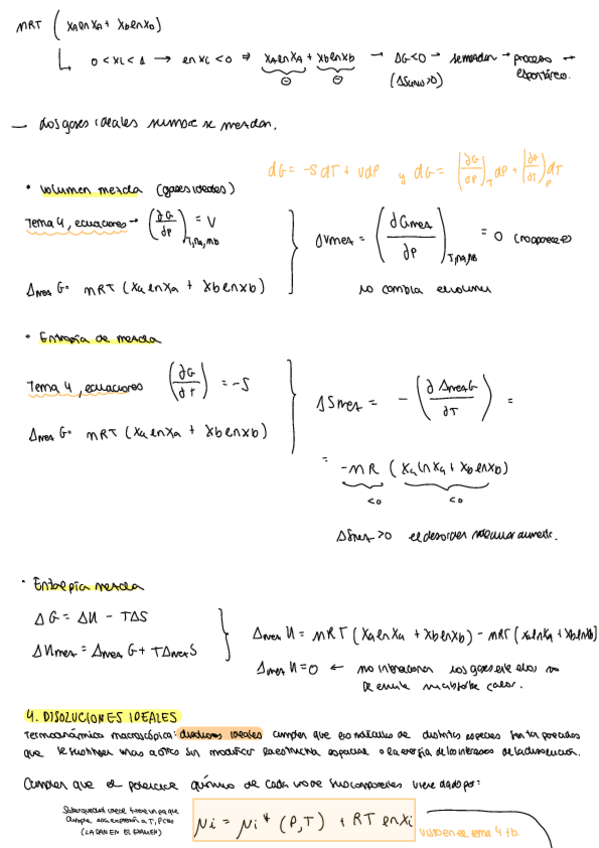 nRT (xa ln xa + xb ln xb)
0 < xi < 1 → ln xi < 0 ⇒ xa ln xa + xb ln xb → ΔG<0 → se mezclan → proceso
⊖ ⊖ (ΔSuniv>0) espontáneo.
— Los gases ideales siempre se mezclan.
dG = -SdT + VdP y dG = (∂G/∂P)T dP + (∂G/∂T)P dT
• Volumen mezcla (gases ideales)
Tema 4, ecuaciones → (∂G/∂P)T,na,nb = V
Δmez G = nRT (xa ln xa + xb ln xb)
ΔVmez = (∂Gmez/∂P)T,na,nb = 0 (no aparece P)
no cambia el volumen
• Entropía de mezcla
Tema 4, ecuaciones (∂G/∂T) = -S
Δmez G = nRT (xa ln xa + xb ln xb)
ΔSmez = - (∂ΔmezG/∂T) =
= -nR (xa ln xa + xb ln xb)
<0 <0
ΔSmez >0 el desorden molecular aumenta.
• Entalpía mezcla
ΔG = ΔH - TΔS
ΔHmez = Δmez G + TΔmez S
Δmez H = nRT (xa ln xa + xb ln xb) - nRT (xa ln xa + xb ln xb)
Δmez H = 0 ← no interaccionan los gases entre ellos no
se emite ni absorbe calor.
4. DISOLUCIONES IDEALES
Termodinámica macroscópica: disoluciones ideales cumplen que las moléculas de distintas especies son tan parecidas
que se sustituyen unas a otras sin modificar la estructura espacial o la energía de las interacciones de la disolución.
Cumplen que el potencial químico de cada uno de sus componentes viene dado por:
(LA DAN EN EL EXAMEN)
μi = μi* (P,T) + RT ln xi
visto en el tema 4